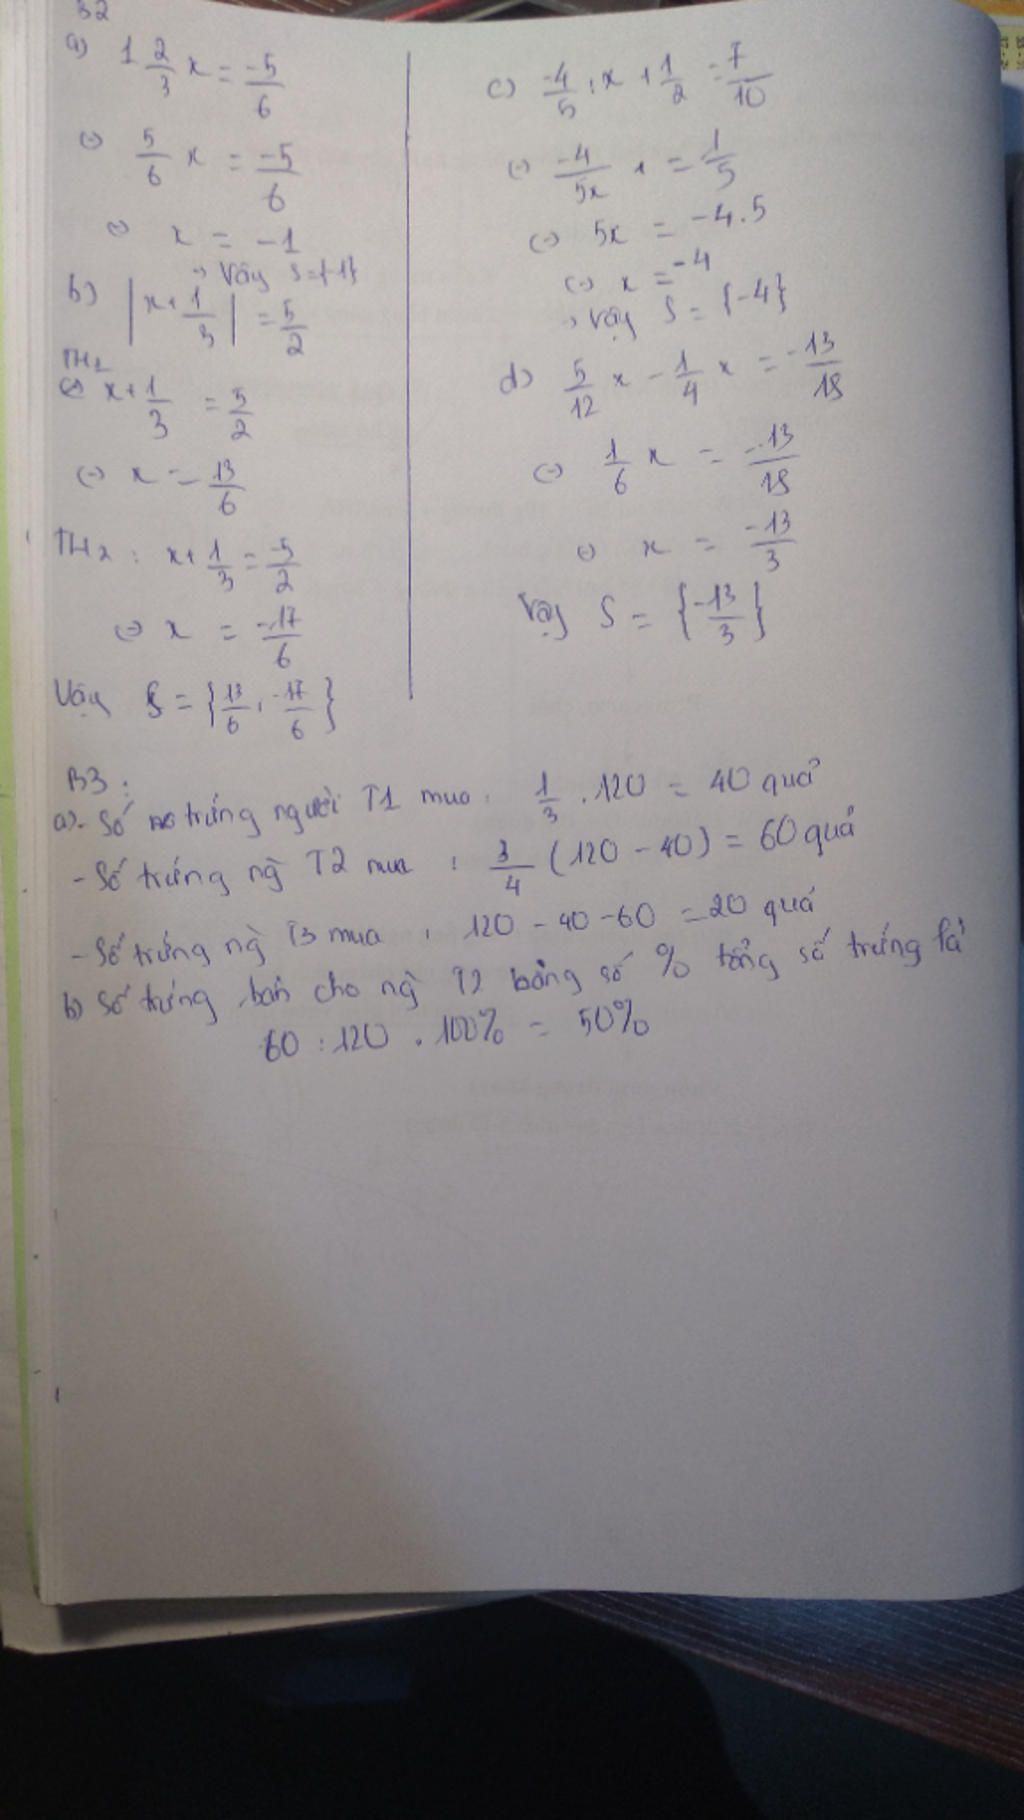 B2
a) 1 2/3 x = -5/6
(=) 5/6 x = -5/6
(=) x = -1
→ Vậy S = {-1}
b) |x + 1/3| = 5/2
TH1
(=) x + 1/3 = 5/2
(=) x = 13/6
TH2 : x + 1/3 = -5/2
(=) x = -17/6
Vậy S = {13/6, -17/6}
c) -4/5 : x + 1/2 = 7/10
(=) -4/5x = 1/5
(=) 5x = -4.5
(=) x = -4
→ Vậy S = {-4}
d) 5/12 x - 1/4 x = -13/18
(=) 1/6 x = -13/18
(=) x = -13/3
Vậy S = {-13/3}
B3 :
a) - Số trứng người T1 mua : 1/3 . 120 = 40 quả
- Số trứng ng T2 mua : 3/4 (120 - 40) = 60 quả
- Số trứng ng T3 mua : 120 - 40 - 60 = 20 quả
b) Số trứng bán cho ng T2 bằng số % tổng số trứng là
60 : 120 . 100% = 50%